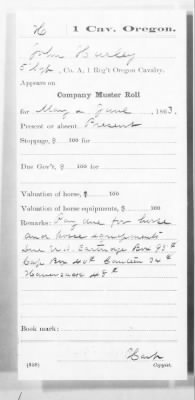 H 1 Cav. Oregon.
John Hurley
5 Sgt, Co. A, 1 Reg't Oregon Cavalry.
Appears on
Company Muster Roll
for May & June, 1863.
Present or absent Present
Stoppage, $ 100 for
Due Gov't, $ 100 for
Valuation of horse, $ 100
Valuation of horse equipments, $ 100
Remarks: Pay due for horse
and horse equipments
Due U.S. Cartridge Box 93¢
Cap Box 40¢ Canteen 34¢
Haversack 48¢
Book mark:
(858)
Copyist.